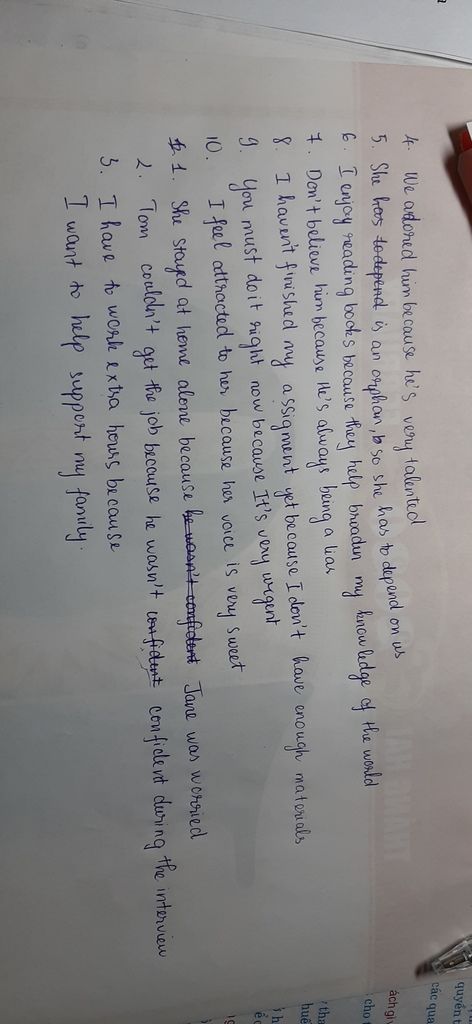 4. We adored him because he's very talented
5. She has to depend is an orphan, so she has to depend on us
6. I enjoy reading books because they help broaden my knowledge of the world
7. Don't believe him because He's always being a liar
8. I haven't finished my assigment yet because I don't have enough materials
9. You must do it right now because It's very urgent
10. I feel attracted to her because her voice is very sweet
1. She stayed at home alone because he wasn't confident Jane was worried
2. Tom couldn't get the job because he wasn't confident confident during the interview
3. I have to work extra hours because
I want to help support my family.
quyền
các qua
ách gi
cho